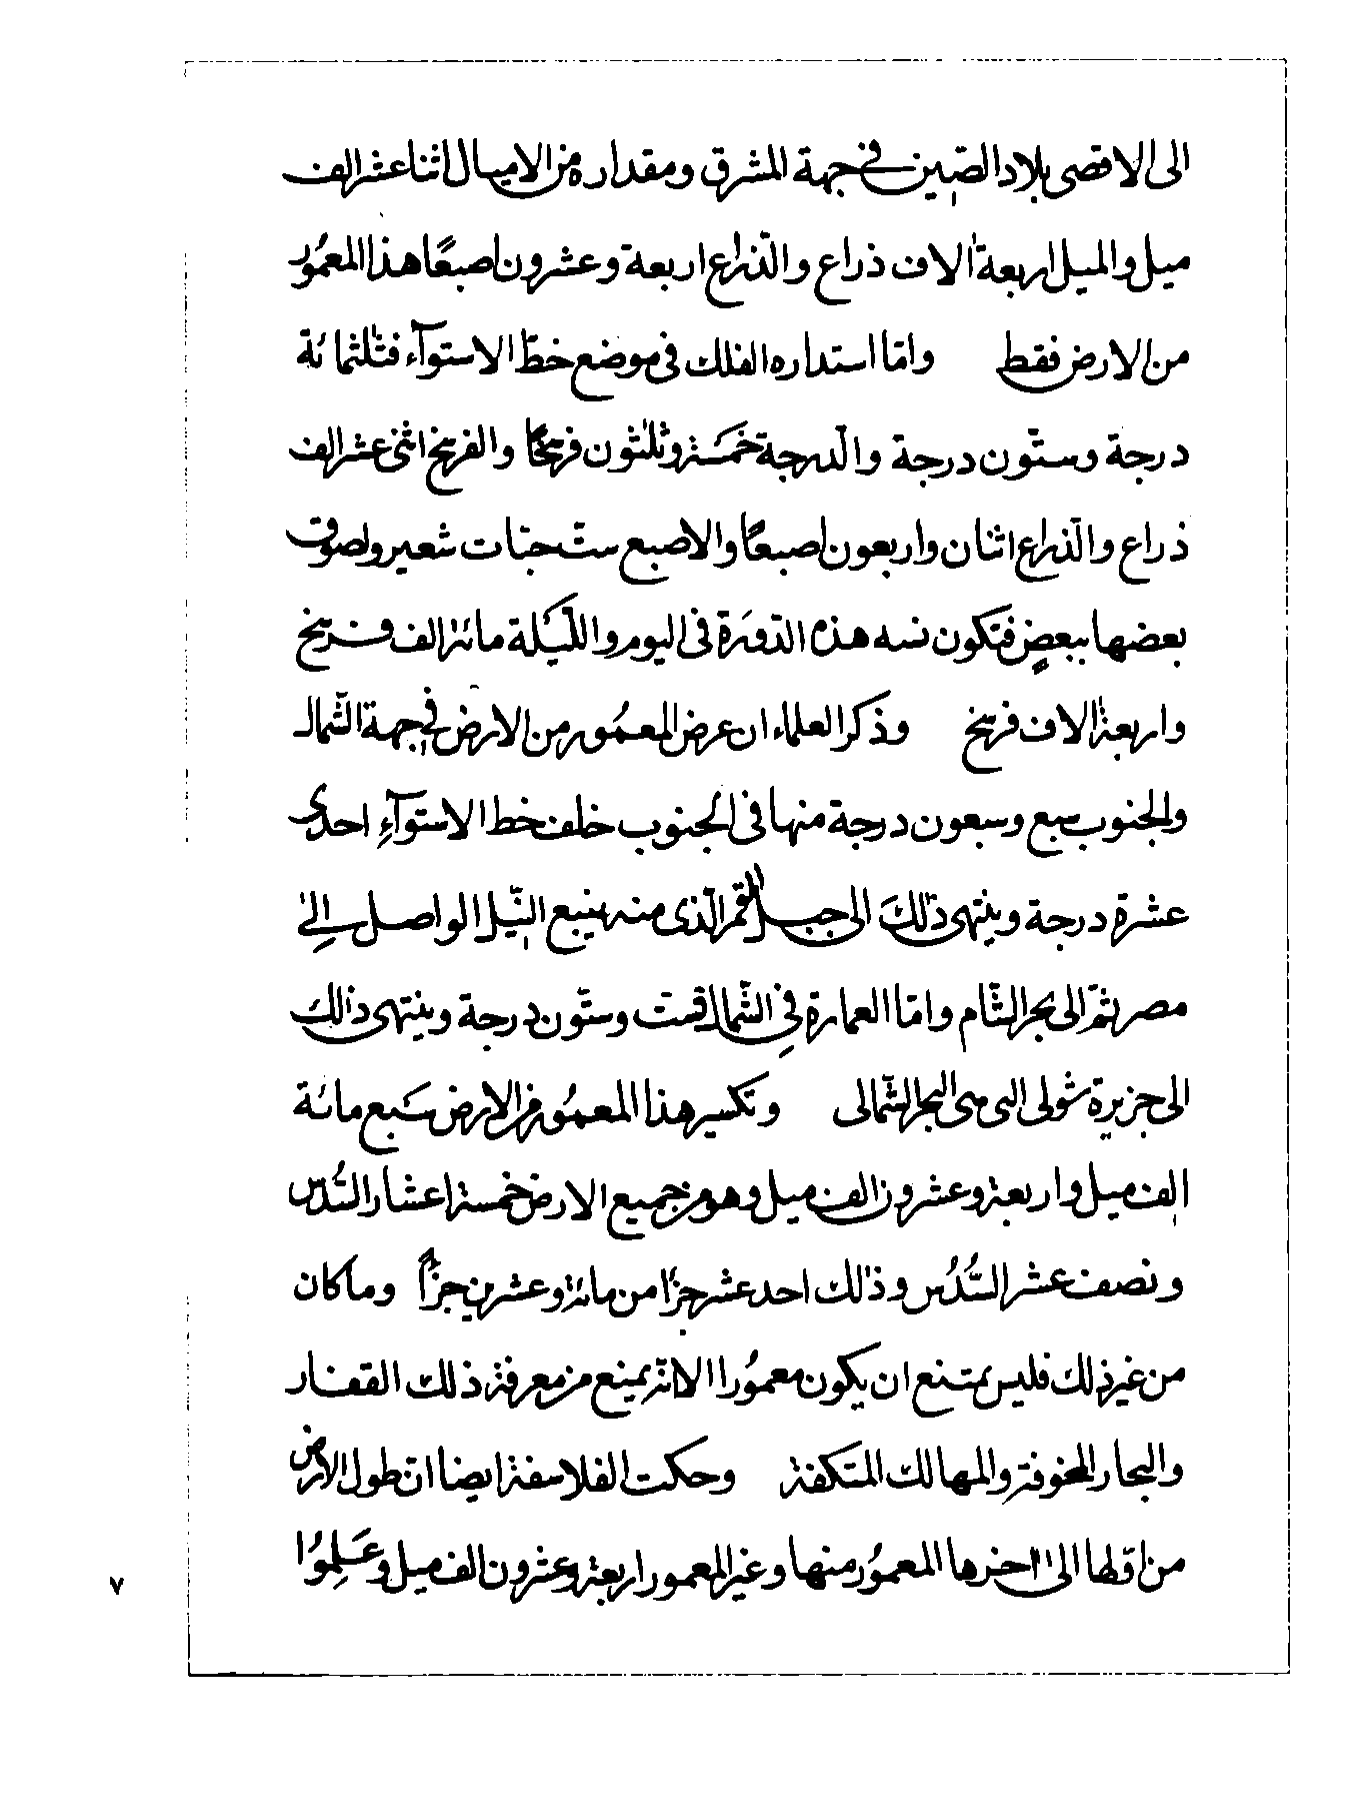 الى الاقصى بلاد الصّين فى جهة المشرق ومقداره من الاميال اثنا عشر الف
ميل والميل اربعة الاف ذراع والذّراع اربعة وعشرون اصبعًا هذا المعمُور
من الارض فقط وامّا استداره الفلك فى موضع خطّ الاستوآء فثلثمائة
درجة وستّون درجة والدّرجة خمَسة وثلثون فرسخًا والفرسخ اثنى عشر الف
ذراع والذّراع اثنان واربعون اصبعًا والاصبع ستّ حبّات شعير ولصوق
بعضها ببعضٍ فتكون نسه هذه الدّورَة فى اليوم واللّيَلة مائة الف فرسخ
واربعة الاف فرسخ وذكر العلماء ان عرض المعمُور من الارض فى جهة الشّمال
والجنوب سبع وسبعون درجة منها فى الجنوب خلف خط الاستوآءِ احدى
عشرة درجة وينتهى ذلكَ الى جبل القمر الّذى منه ينبع النّيل الواصل إلى
مصر ثمّ الى بحر الشّام وامّا العمارة فِى الشّمال فست وستّون درجة وينتهى ذالك
الى جزيرة شولى التى فى البحر الشّمالى وتكسير هذا المعمُور من الارض سَبع مائة
الف ميل واربعة وعشرون الف ميل وهو من جميع الارض خمسة اعشار السُّدس
ونصف عشر السُّدُس وذالك احد عشر جزًا من مائة وعشرين جزًا وما كان
من غير ذلك فليس يمتنع ان يكون معمُورا الا انّه يمنع من معرفة ذلك القفار
والبحار المخوفة والمهالك المتكفة وحكت الفلاسفة ايضا انّ طول الارض
من اوّلها الى اخرها المعمُور منها وغير المعمور اربعة وعشرون الف ميل وعَلِموُا
٧